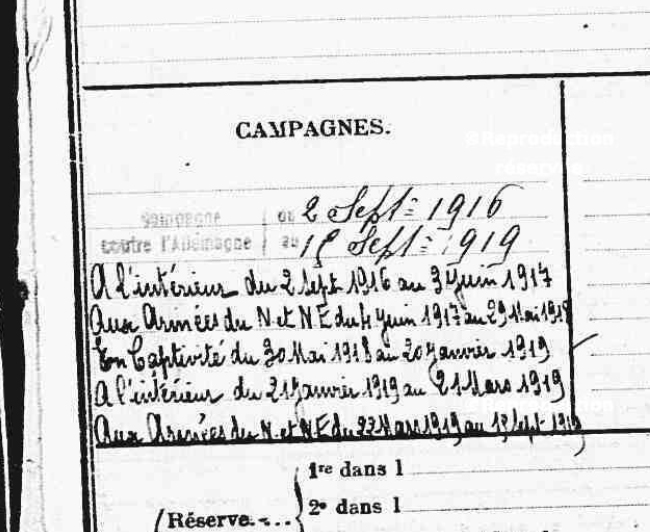 CAMPAGNES.
©Reproduction
réservée
Campagne du 2 Sept: 1916
contre l'Allemagne au Sept: 1919
A l'intérieur du 2 Sept. 1916 au 3 Juin 1917
Aux Armées du N et NE du 4 Juin 1917 au 29 Mai 1918
En Captivité du 30 Mai 1918 au 20 Janvier 1919
A l'intérieur du 21 Janvier 1919 au 21 Mars 1919
Aux Armées du N. et NE du 22 Mars 1919 au Sept 1919
1re dans l
Réserve.
2e dans l